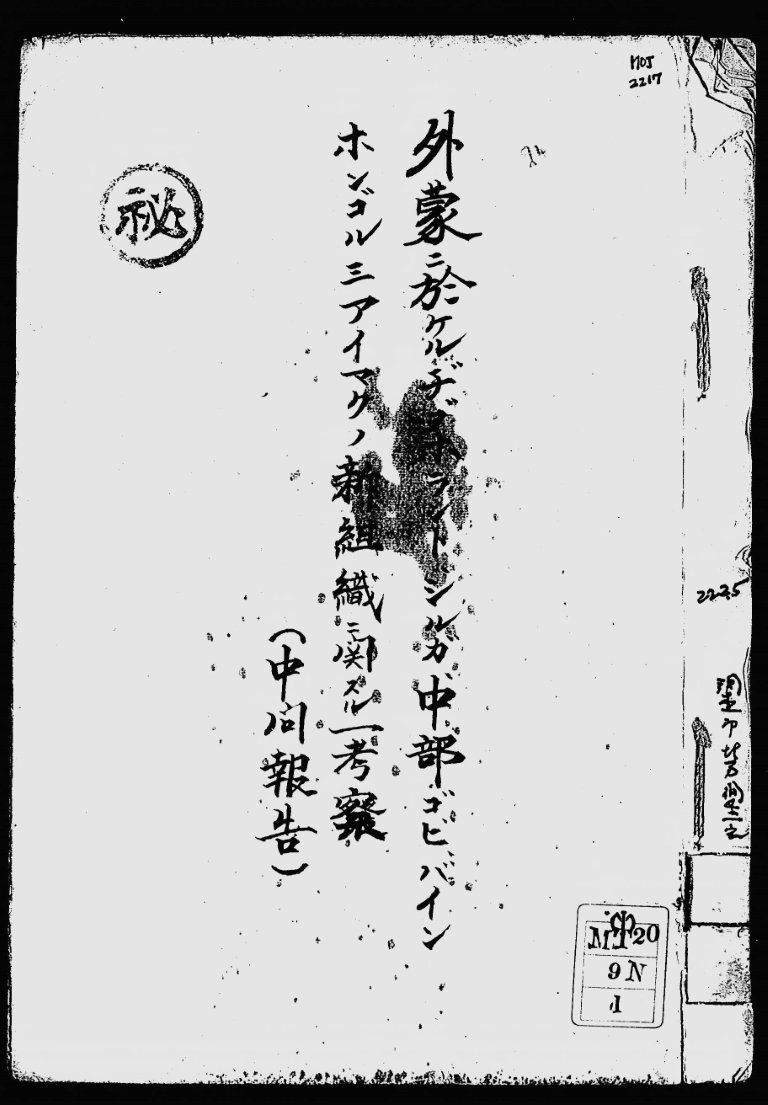 MOJ
2217
外蒙ニ於ケルヂボランドシルガ中部ゴビバイン
ホンゴル三アイマクノ新組織ニ関スル一考察
(中间報告)
秘
2225
MT20
9N
1